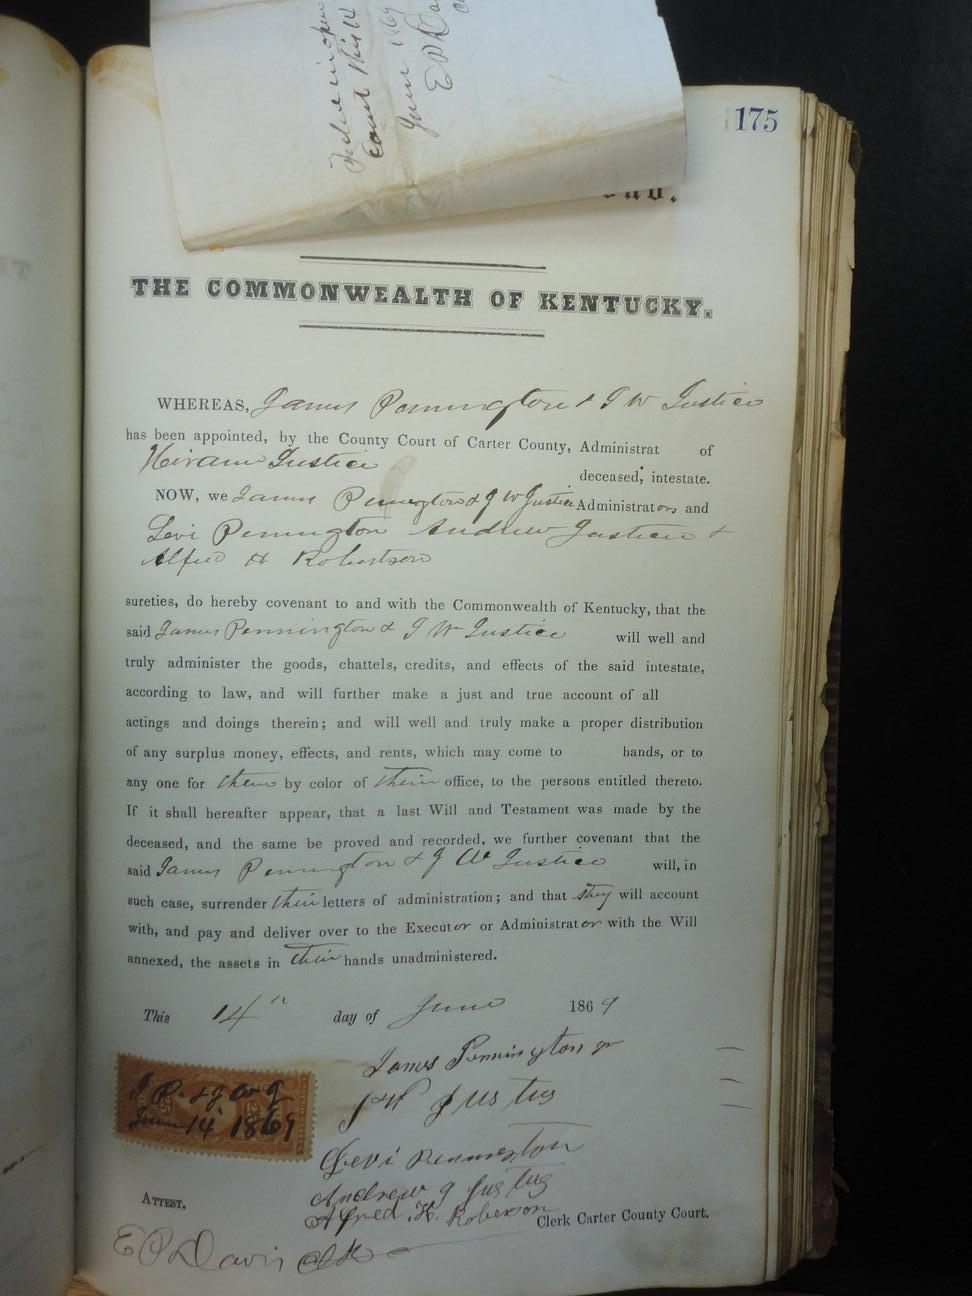 Taken in open
court this 14
June 1869
E P Da
175
THE COMMONWEALTH OF KENTUCKY.
WHEREAS, James Pennington & J W Justice
has been appointed, by the County Court of Carter County, Administrat of
Hiram Justice deceased, intestate.
NOW, we James Pennington & J W Justice Administrators and
Levi Pennington Andrew Justice &
Alfred H Robertson
sureties, do hereby covenant to and with the Commonwealth of Kentucky, that the
said James Pennington & J W Justice will well and
truly administer the goods, chattels, credits, and effects of the said intestate,
according to law, and will further make a just and true account of all
actings and doings therein; and will well and truly make a proper distribution
of any surplus money, effects, and rents, which may come to hands, or to
any one for them by color of their office, to the persons entitled thereto.
If it shall hereafter appear, that a last Will and Testament was made by the
deceased, and the same be proved and recorded, we further covenant that the
said James Pennington & J W Justice will, in
such case, surrender their letters of administration; and that they will account
with, and pay and deliver over to the Executor or Administrator with the Will
annexed, the assets in their hands unadministered.
This 14th day of June 1869
James Pennington jr
J W Justus
Levi Pennington
Andrew J Justus
Alfred H. Roberson
J P. & J W J
June 14 1869
ATTEST,
Clerk Carter County Court.
E P Davis Clk